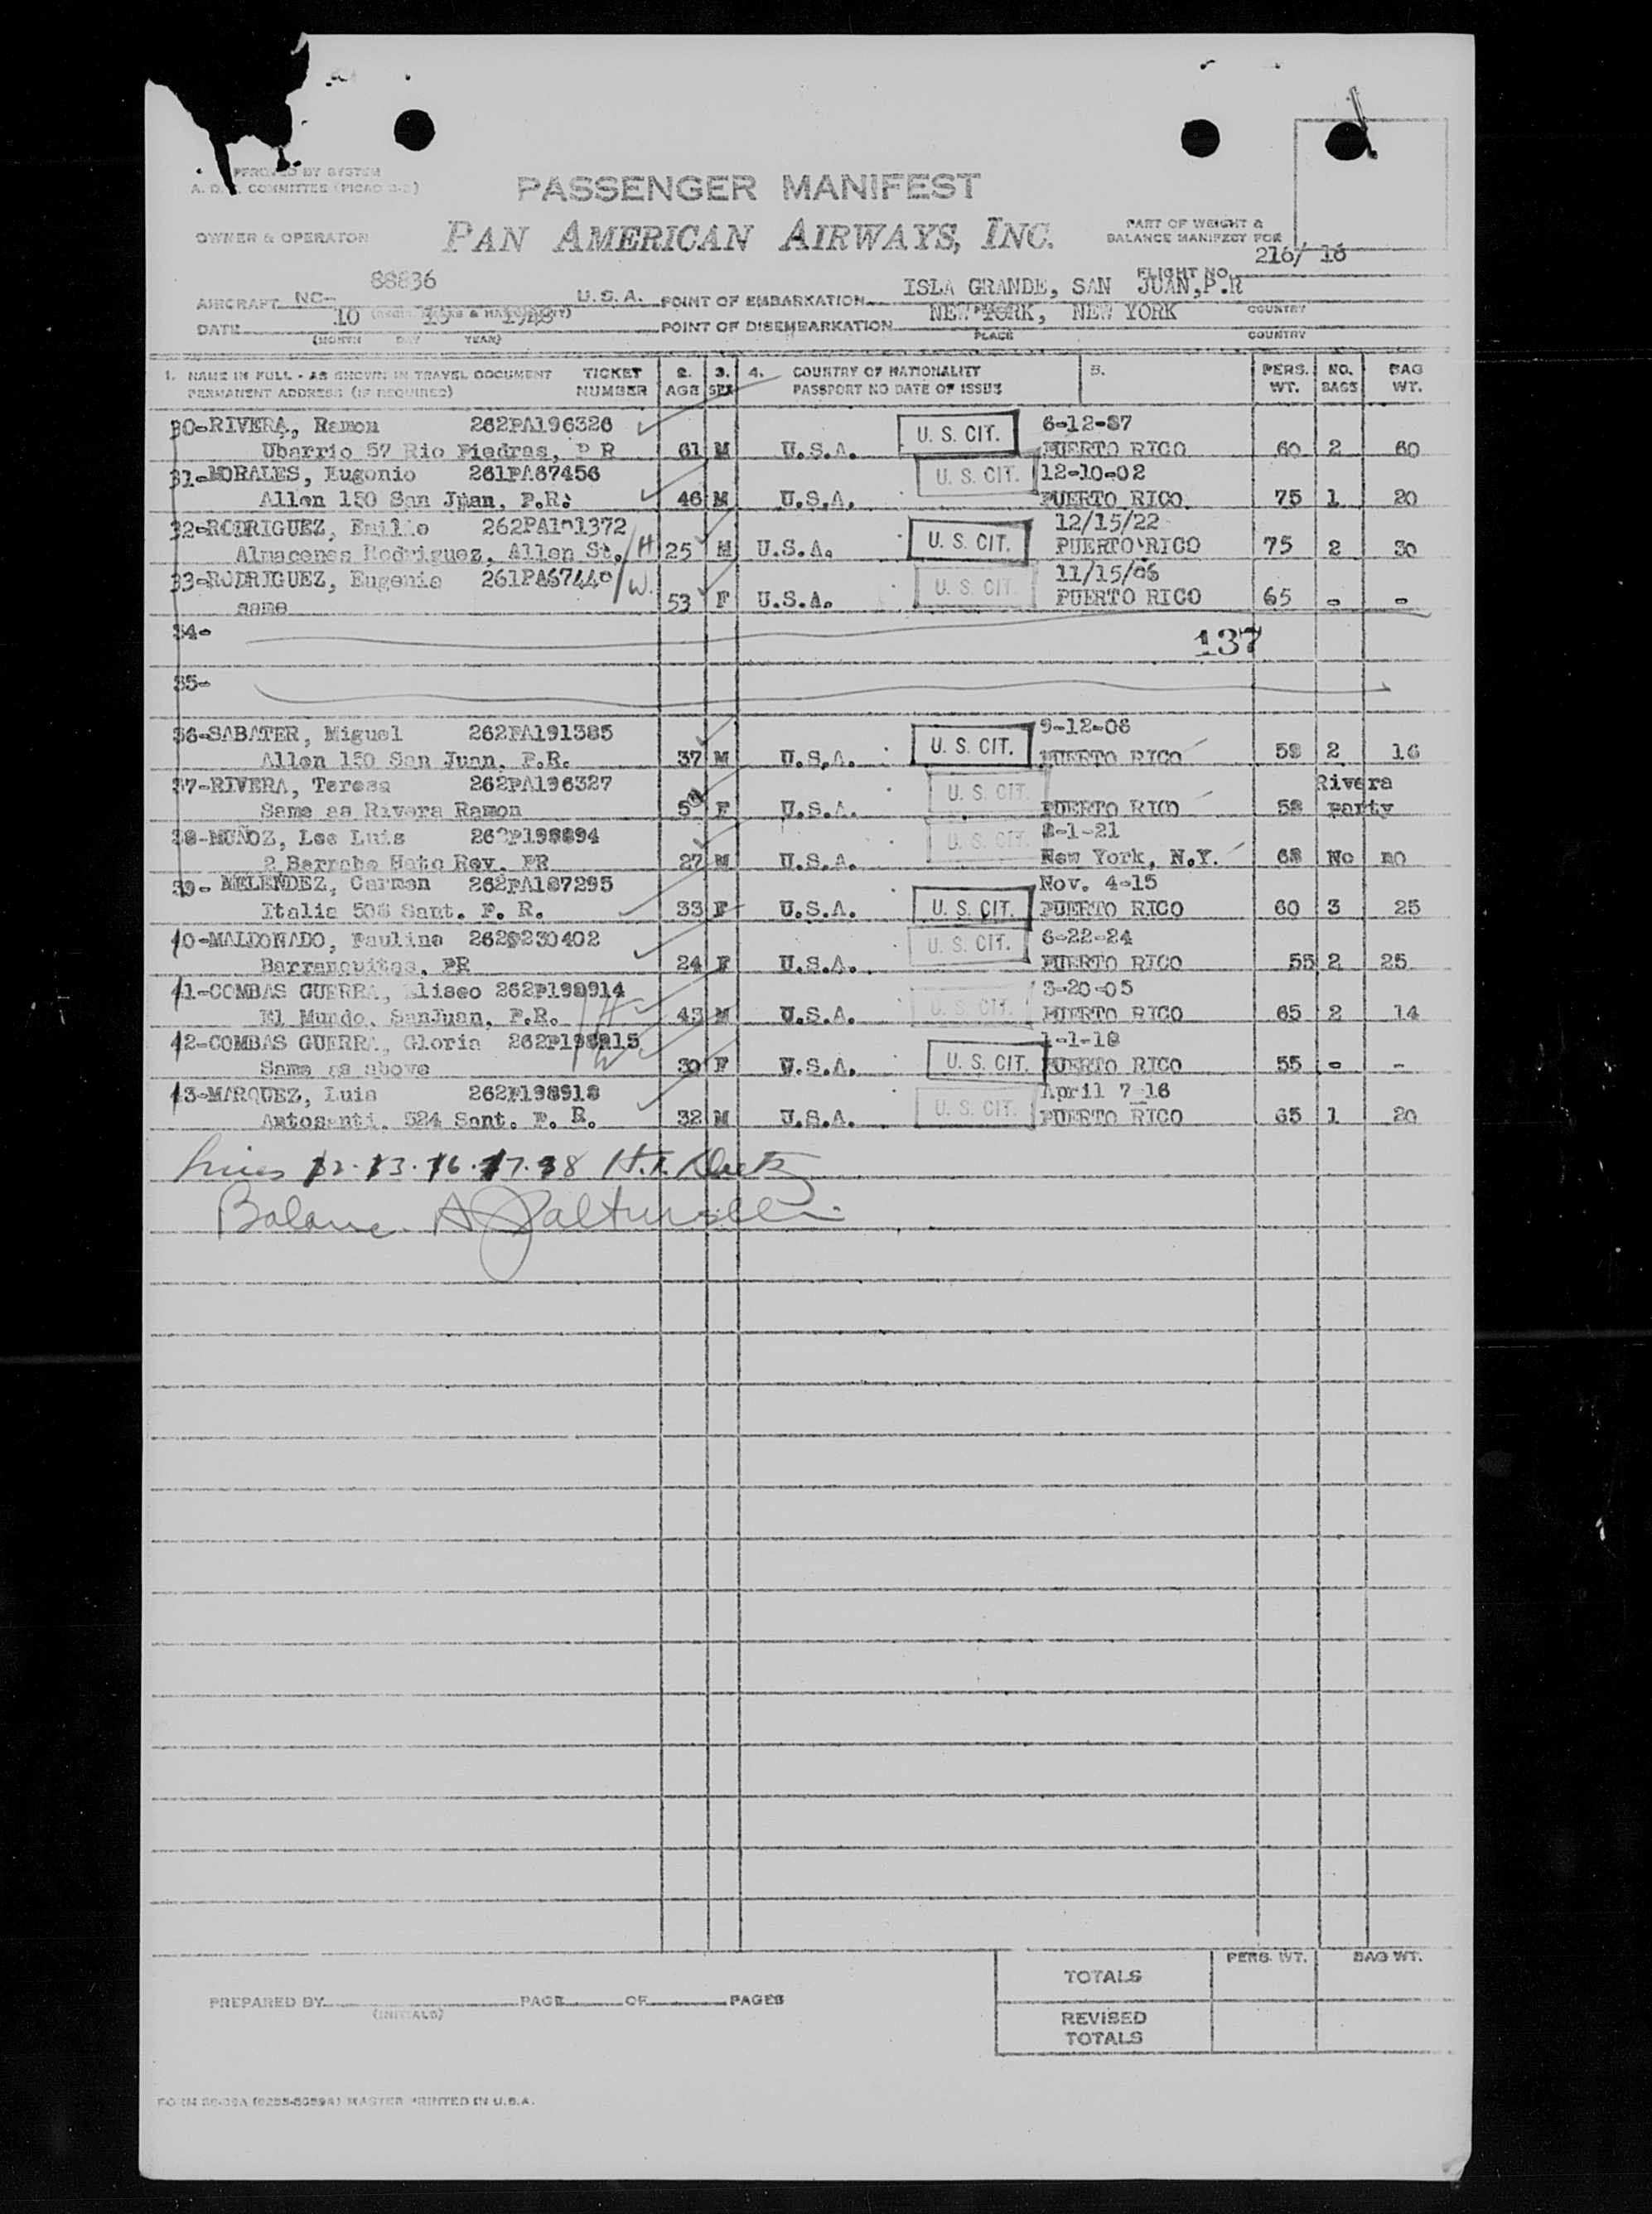 A. D. COMMITTEE (PICAO 2-2)
PASSENGER MANIFEST
OWNER & OPERATOR
PAN AMERICAN AIRWAYS, INC.
PART OF WEIGHT &
BALANCE MANIFEST FOR
FLIGHT NO. 216/ 16
AIRCRAFT NC- 88836 U.S.A. POINT OF EMBARKATION ISLA GRANDE, SAN JUAN, P.R
DATE 10 1948 POINT OF DISEMBARKATION NEW YORK, NEW YORK
(MONTH DAY YEAR) PLACE COUNTRY
1. NAME IN FULL - AS SHOWN IN TRAVEL DOCUMENT TICKET 2. 3. 4. COUNTRY OF NATIONALITY 5. PERS. NO. BAG
PERMANENT ADDRESS (IF REQUIRED) NUMBER AGE SEX PASSPORT NO DATE OF ISSUE WT. BAGS WT.
30-RIVERA, Ramon 262PA196326 U. S. CIT. 6-12-87
Ubarrio 57 Rio Piedras, P R 61 M U.S.A. PUERTO RICO 60 2 60
31-MORALES, Eugonio 261PA67456 U. S. CIT. 12-10-02
Allen 150 San Juan, P.R. 46 M U.S.A. PUERTO RICO 75 1 20
32-RODRIGUEZ, Emilio 262PA101372 12/15/22
Almacenes Rodriguez, Allen St. H 25 M U.S.A. U. S. CIT. PUERTO RICO 75 2 30
33-RODRIGUEZ, Eugenia 261PA67440 W. U. S. CIT. 11/15/
same 53 F U.S.A. PUERTO RICO 65 - -
34- 137
35-
36-SABATER, Miguel 262PA191385 U. S. CIT. 9-12-06
Allen 150 San Juan, P.R. 37 M U.S.A. PUERTO RICO 58 2 16
37-RIVERA, Teresa 262PA196327 U. S. CIT. Rivera
Same as Rivera Ramon F U.S.A. PUERTO RICO 58 party
38-MUÑOZ, Lee Luis U. S. CIT. 8-1-21
2 Barrabe Hato Rey, PR 27 M U.S.A. New York, N.Y. 68 No no
39- MELENDEZ, Carmen 262PA187295 Nov. 4-15
Italia 508 Sant. P. R. 33 F U.S.A. U. S. CIT. PUERTO RICO 60 3 25
40-MALDONADO, Paulina U. S. CIT. 6-22-24
Barranquitas, PR 24 F U.S.A. PUERTO RICO 55 2 25
41-COMBAS GUERRA, Eliseo 262P198914 H U. S. CIT. 3-20-05
El Mundo, SanJuan, P.R. 43 M U.S.A. PUERTO RICO 65 2 14
42-COMBAS GUERRA, Gloria W 1-1-18
Same as above 30 F U.S.A. U. S. CIT. PUERTO RICO 55 - -
43-MARQUEZ, Luis 262P198918 U. S. CIT. April 7-16
524 Sant. P. R. 32 M U.S.A. PUERTO RICO 65 1 20
Balance
PERS. WT. BAG WT.
TOTALS
PREPARED BY PAGE OF PAGES
(INITIALS)
REVISED
TOTALS
MASTER PRINTED IN U.S.A.